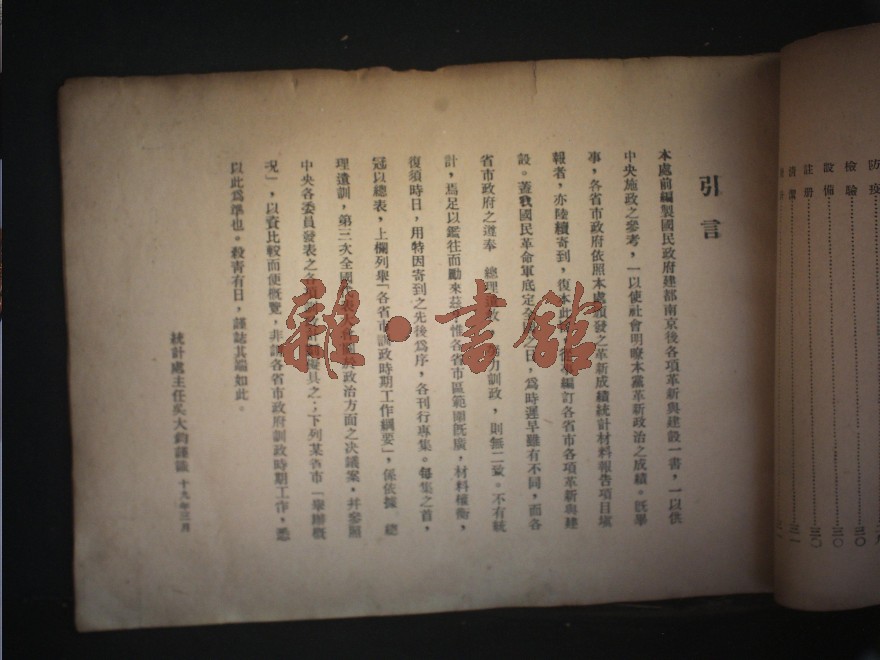 引言
本處前編製國民政府建都南京後各項革新與建設一書，一以供
中央施政之參考，一以使社會明瞭本黨革新政治之成績。既畢
事，各省市政府依照本處頒發之革新成績統計材料報告項目填
報者，亦陸續寄到，復本此 編訂各省市各項革新與建
設。蓋我國民革命軍底定全 之日，爲時遲早雖有不同，而各
省市政府之遵奉　總理 力訓政，則無二致。不有統
計，焉足以鑑往而勵來茲 惟各省市區範圍既廣，材料權衡，
復須時日，用特因寄到之先後爲序，各刊行專集。每集之首，
冠以總表，上欄列舉「各省市訓政時期工作綱要」，係依據　總
理遺訓，第三次全國 政治方面之决議案，并參照
中央各委員發表之各項 具之；下列某省市「舉辦概
況」，以資比較而便概覽，非謂各省市政府訓政時期工作，悉
以此爲準也。殺青有日，謹誌其端如此。
統計處主任吳大鈞謹識　十九年三月
防疫
檢驗 三〇
設備 三〇
註册 三〇
清潔 三一
雜·書館